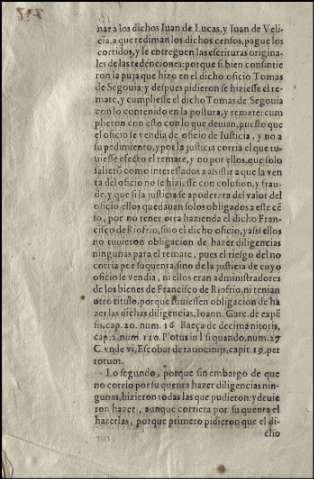 nar a los dichos Iuan de Lucas, y Iuan de Veli-
cia, a que rediman los dichos censos, pague los
corridos, y le entreguen las escrituras origina-
les de las redenciones: porque si bien consintie
ron la puja que hizo en el dicho oficio Tomas
de Segouia, y despues pidieron se hiziesse el re-
mate, y cumpliesse el dicho Tomas de Segouia
con lo contenido en la postura, y remate: cum
plieron con esto con lo que deuian, puesto que
el oficio se vendia de oficio de Iusticia, y no a
su pedimiento, y por la justicia corria el que tu-
uiesse efecto el remate, y no por ellos, que solo
salierō como interessados a assistir a que la ven
ta del oficio no se hiziesse con colusion, y frau-
de, y que si la justicia se apoderara del valor del
oficio, ellos quedauan solos obligados a este cē
so, por no tener otra hazienda el dicho Fran-
cisco de Riofrio, sino el dicho oficio, y assi ellos
no tuuieron obligacion de hazer diligencias
ningunas para el remate, pues el riesgo del no
corria por su quenta, sino de la justicia de cuyo
oficio se vendia, ni ellos eran administradores
de los bienes de Francisco de Riofrio, ni tenian
otro titulo, porque tuuiessen obligacion de ha
zer las dichas diligencias, Ioann. Garc. de expē
sis, cap. 20. num. 16. Baeça de decima tutoris,
cap. 2. num. 110. Plotus in l. si quando, num. 27
C. vnde vi, Escobar de ratiocinijs, capit. 19. per
totum.
Lo segundo, porque sin embargo de que
no corrio por su quenta hazer diligencias nin-
gunas, hizieron todas las que pudieron, y deuie
ron hazer, aunque corriera por su quenta el
hazerlas, porque primero pidieron que el di-
cho